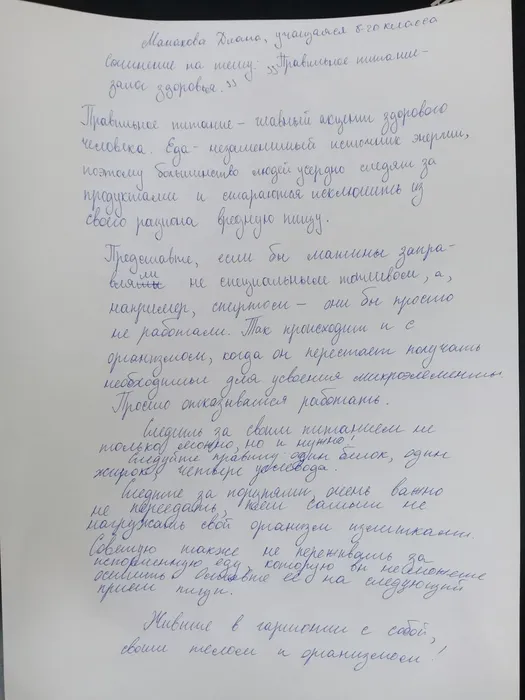 Мамахова Диана, учащаяся 8-го класса
Сочинение на тему: "Правильное питание-
залог здоровья."
Правильное питание – главный акцент здорового
человека. Еда - незаменимый источник энергии,
поэтому большинство людей усердно следят за
продуктами и стараются исключить из
своего рациона вредную пищу.
Представьте, если бы машины запра-
вляли не специальным топливом, а,
например, спиртом – они бы просто
не работали. Так происходит и с
организмом, когда он перестает получать
необходимые для усвоения микроэлементы.
Просто отказывается работать.
Следить за своим питанием не
только можно, но и нужно!
Следуйте правилу: один белок, один
жирок и четверг углевода.
Следите за порциями, очень важно
не переедать, тем самым не
нагружать свой организм излишками.
Советую также не переживать за
испорченную еду, которую вы не сможете
осилить оставьте её на следующий
прием пищи.
Живите в гармонии с собой,
своим телом и организмом!